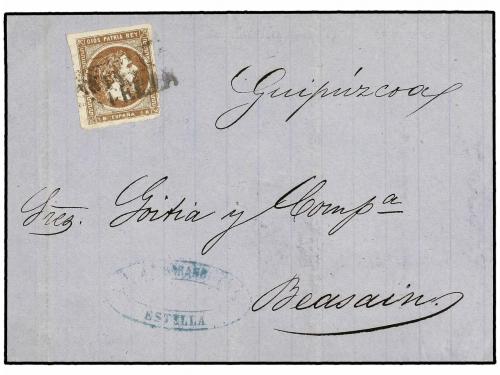 DIOS PATRIA REY
ESPAÑA
Guipúzcoa
Sres. Goitia y Compª
Beasain.
ESTELLA